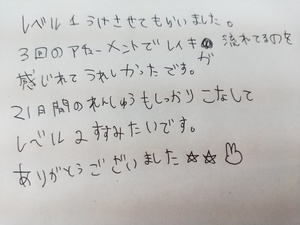 レベル1うけさせてもらいました。
3回のアチューメントでレイキが流れてるのを
感じれてうれしかったです。
21日間のれんしゅうもしっかりこなして
レベル2すすみたいです。
ありがとうございました☆☆